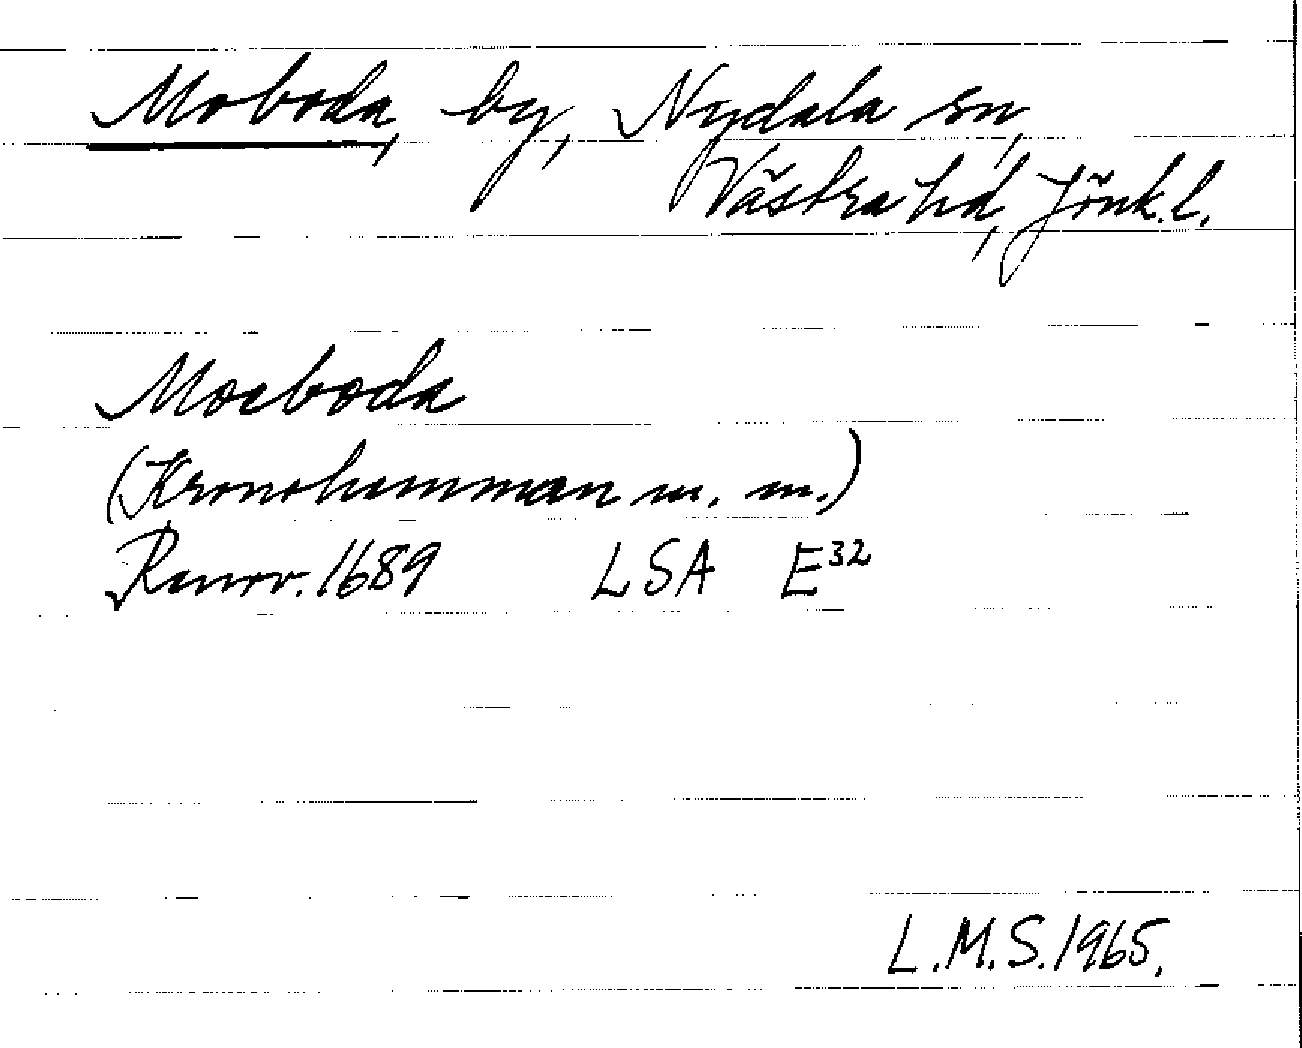 Moboda, by, Nydala sn,
Västra hd, Jönk.l.
Moeboda
(Kronohemman m. m.)
Renov. 1689 LSA E³²
L.M.S. 1965.